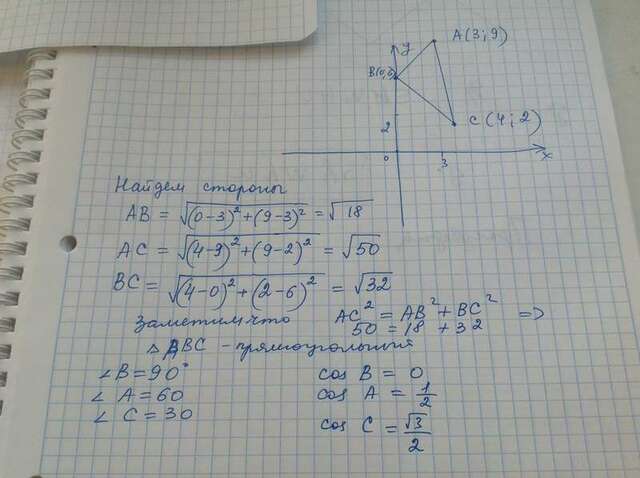 y
A(3;9)
B(0;6)
C(4;2)
2
0
3
x
Найдем стороны
AB = √(0-3)²+(9-3)² = √18
AC = √(4-9)²+(9-2)² = √50
BC = √(4-0)²+(2-6)² = √32
Заметим что AC² = AB² + BC² =>
50 = 18 + 32
△ ABC - прямоугольный
∠B = 90° cos B = 0
∠A = 60 cos A = 1/2
∠C = 30 cos C = √3/2